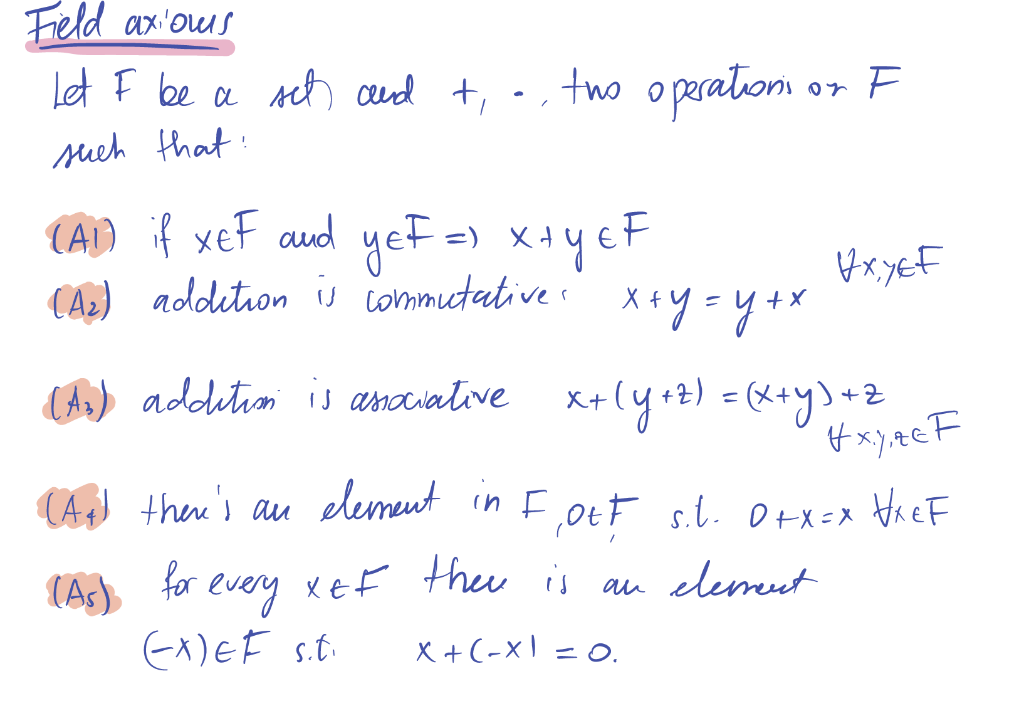 Field axioms
Let F be a set, and +, ·, two operations on F
such that:
(A1) if x∈F and y∈F => x+y∈F
(A2) addition is commutative: x+y = y+x ∀x,y∈F
(A3) addition is associative x+(y+z) = (x+y)+z
∀x,y,z∈F
(A4) there's an element in F, 0∈F, s.t. 0+x=x ∀x∈F
(A5) for every x∈F there is an element
(-x)∈F s.t. x+(-x) = 0.